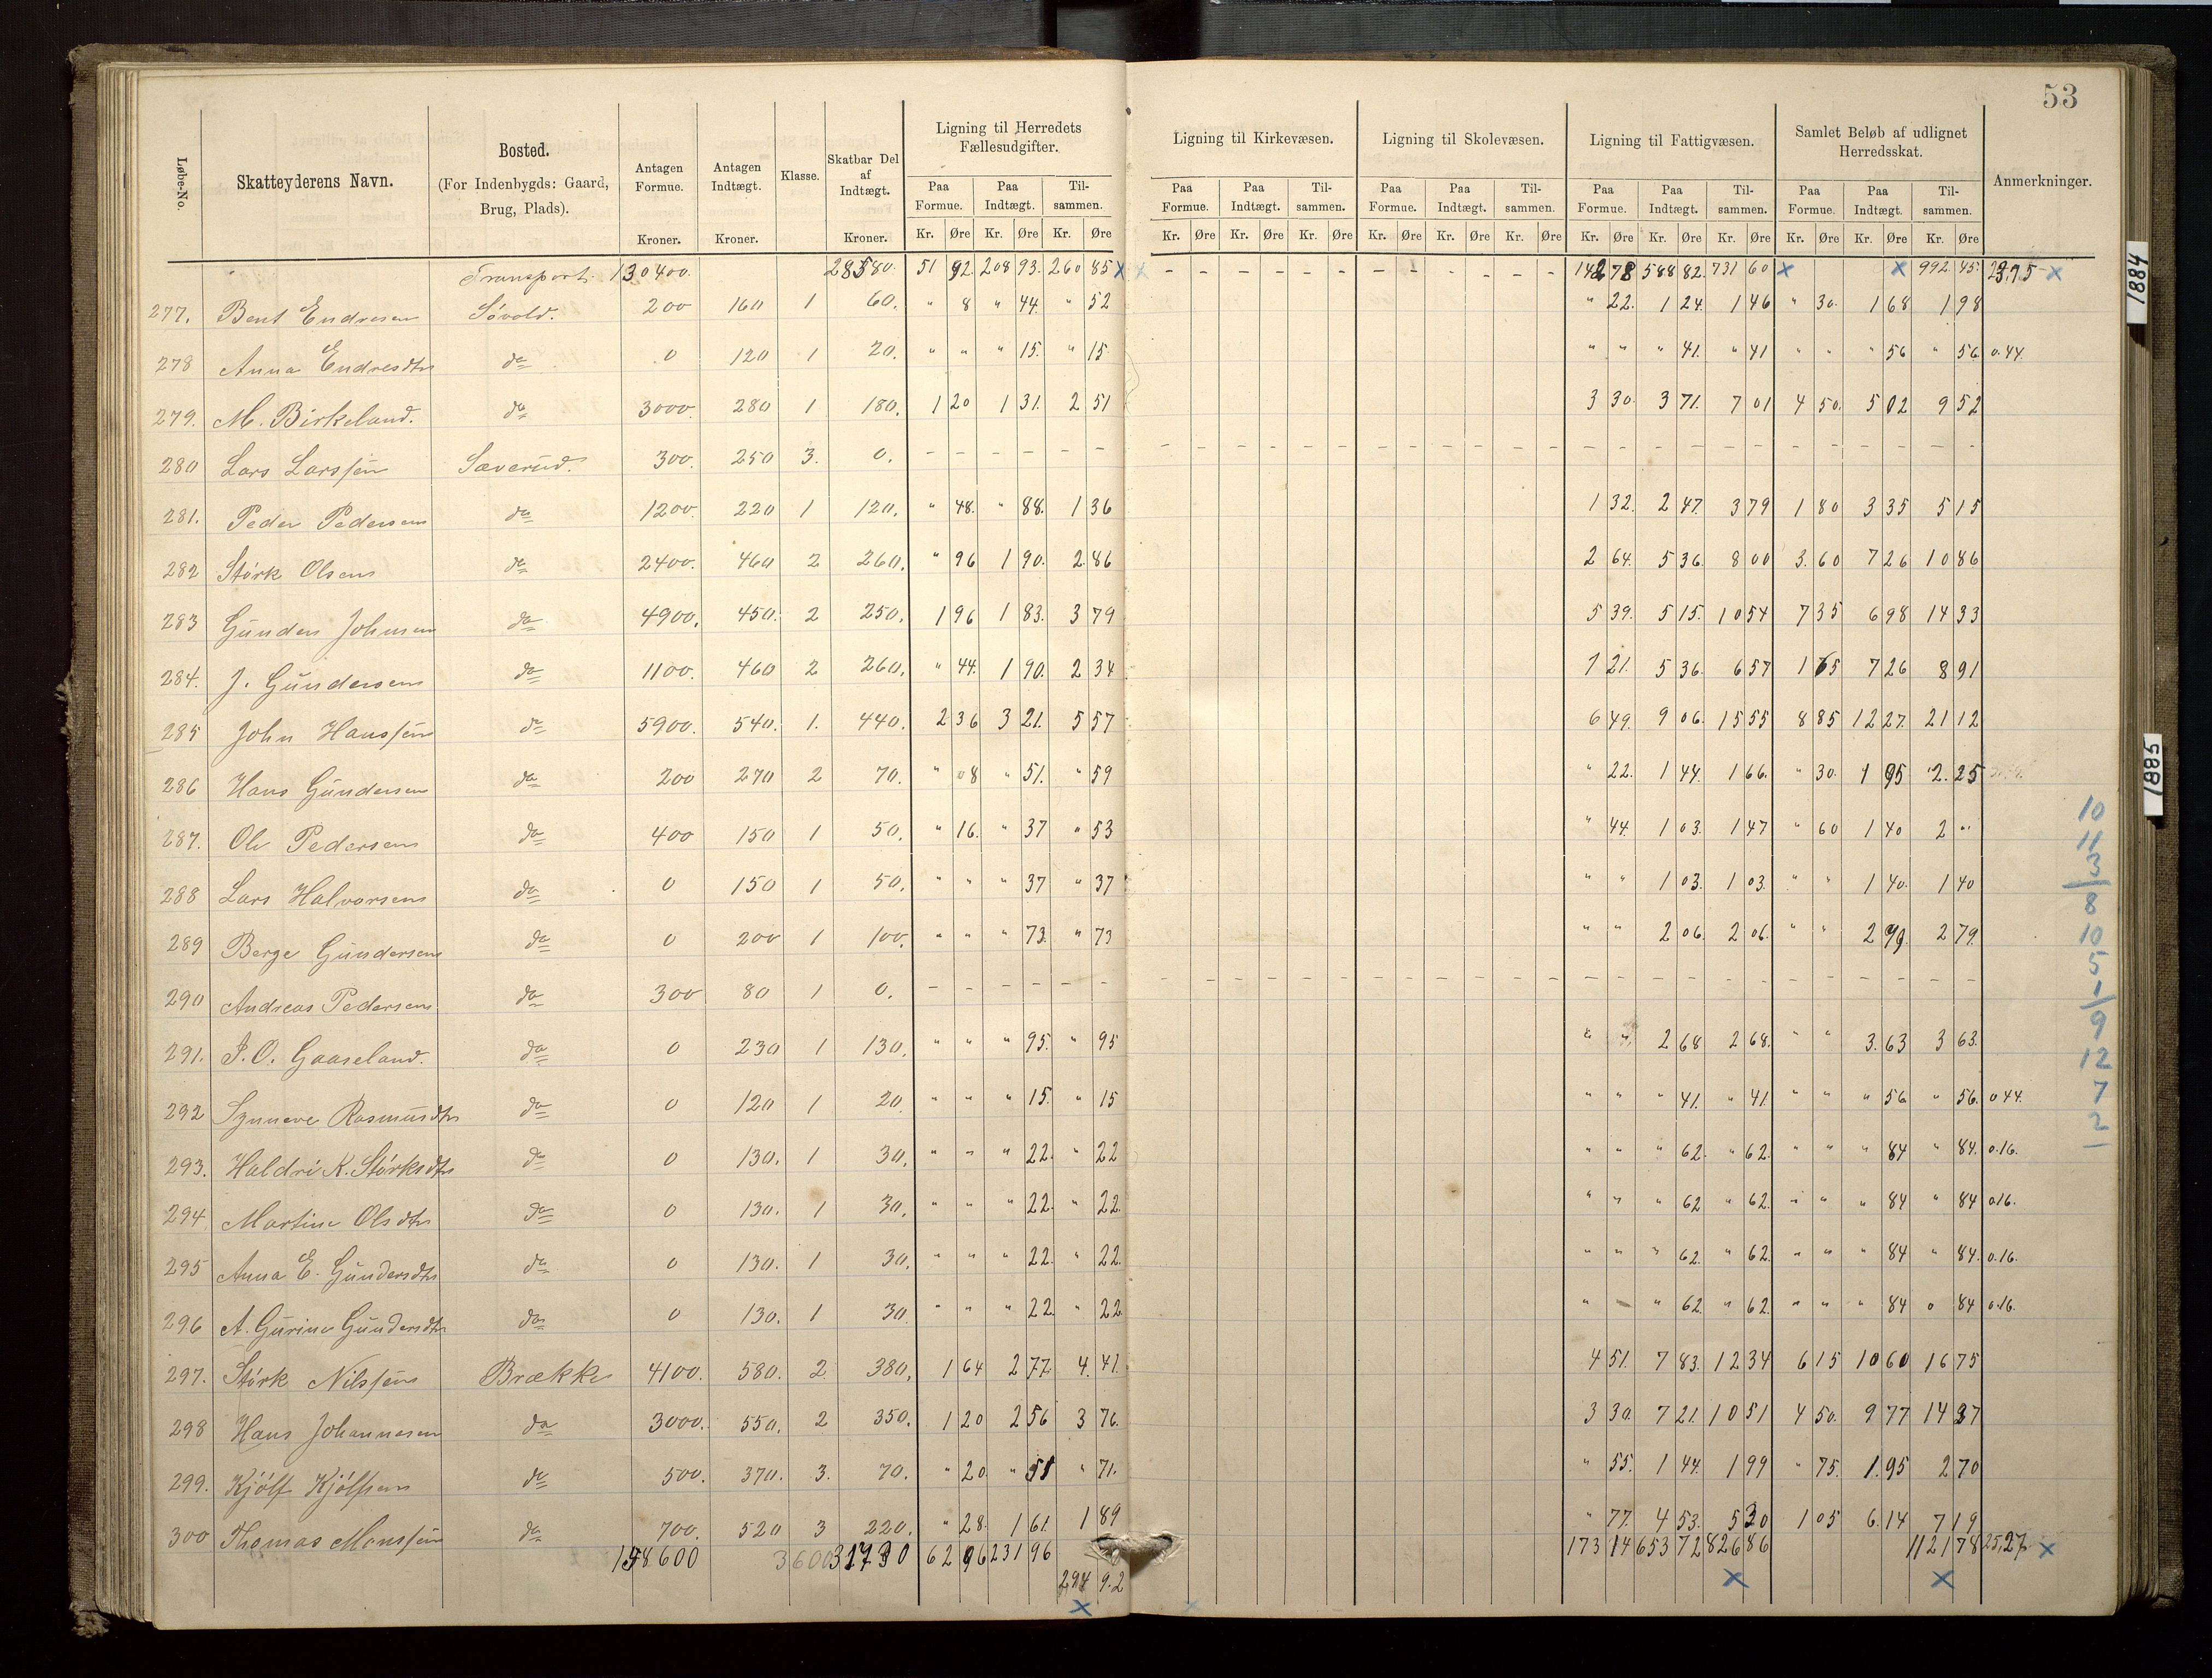 53
Løbe-No. | Skatteyderens Navn. | Bosted. (For Indenbygds: Gaard, Brug, Plads). | Antagen Formue. Kroner. | Antagen Indtægt. Kroner. | Klasse. | Skatbar Del af Indtægt. Kroner. | Ligning til Herredets Fællesudgifter. Paa Formue. Kr. Øre Paa Indtægt. Kr. Øre Tilsammen. Kr. Øre | Ligning til Kirkevæsen. Paa Formue. Kr. Øre Paa Indtægt. Kr. Øre Tilsammen. Kr. Øre | Ligning til Skolevæsen. Paa Formue. Kr. Øre Paa Indtægt. Kr. Øre Tilsammen. Kr. Øre | Ligning til Fattigvæsen. Paa Formue. Kr. Øre Paa Indtægt. Kr. Øre Tilsammen. Kr. Øre | Samlet Beløb af udlignet Herredsskat. Paa Formue. Kr. Øre Paa Indtægt. Kr. Øre Tilsammen. Kr. Øre | Anmerkninger.
Transport. 130400. 28580. 51 92. 208 93. 260 85 x - - - - - - - - - - - - 142 78 588 82. 731 60 x x 992 45. x
277. Bent Endresen Sóvold. 200 160 1 60. " 8 " 44. " 52 " 22. 1 24. 1 46 " 30. 1 68 1 98
278 Anna Endresdtr do 0 120 1 20. " " " 15. " 15 " " " 41. " 41 " " " 56 " 56 0.44.
279. M. Birkeland. do 3000. 280 1 180. 1 20 1 31. 2 51 3 30. 3 71. 7 01 4 50. 5 02 9 52
280 Lars Larssen Sæverud. 300. 250 3. 0. - - - - - - - - - - - - - - - - - - - - - - - - - - - - - -
281. Peder Pedersen do 1200. 220 1 120. " 48. " 88. 1 36 1 32. 2 47. 3 79 1 80 3 35 5 15
282 Størk Olsen do 2400. 460 2 260. " 96 1 90. 2.86 2 64. 5 36. 8 00 3.60 7 26 10 86
283 Gunder Johnsen do 4900. 450. 2 250. 1 96 1 83. 3 79 5 39. 5 15. 10 54 7 35 6 98 14 33
284. J. Gundersen do 1100. 460 2 260. " 44. 1 90. 2 34 1 21. 5 36. 6 57 1 65 7 26 8 91
285 John Hanssen do 5900. 540. 1. 440. 2 36 3 21. 5 57 6 49. 9 06. 15 55 8 85 12 27. 21 12
286 Hans Gundersen do 200 270 2 70. " 08 " 51. " 59 " 22. 1 44. 1 66. " 30. 1 95 2.25
287. Ole Pedersen do 400 150 1 50. " 16. " 37 " 53 " 44. 1 03. 1 47 " 60 1 40 2 "
288 Lars Halvorsen do 0 150 1 50. " " " 37 " 37 " " 1 03. 1 03. " " 1 40. 1 40
289 Berge Gundersen do 0 200 1 100. " " " 73. " 73 " " 2 06. 2 06. " " 2 79. 2 79.
290 Andreas Pedersen do 300 80 1 0. - - - - - - - - - - - - - - - - - - - - - - - - - - - - - -
291. J. O. Gaaseland. do 0 230 1 130. " " " 95. " 95 " " 2 68 2 68. " " 3.63 3 63.
292 Synneve Rasmusdtr do 0 120 1 20. " " " 15. " 15 " " " 41. " 41. " " " 56 " 56. 0 44.
293. Haldri K. Størksdtr do 0 130. 1 30. " " " 22. " 22 " " " 62. " 62. " " " 84 " 84. 0.16.
294 Martine Olsdtr do 0 130. 1 30. " " " 22. " 22. " " " 62 " 62. " " " 84 " 84 0.16.
295 Anna E. Gundersdtr do 0 130. 1 30. " " " 22. " 22. " " " 62. " 62. " " " 84 " 84. 0.16.
296 A. Gurine Gundersdtr do 0 130. 1 30 " " " 22. " 22. " " " 62. " 62. " " " 84 " 84 0.16.
297. Størk Nilssen Brække 4100. 580. 2 380. 1 64 2 77. 4.41. 4 51. 7 83. 12 34 6 15 10 60 16 75
298 Hans Johannesen do 3000. 550. 2 350. 1 20 2 56 3 76. 3 30. 7 21. 10 51 4 50. 9 77 14 27
299. Kjólf Kjólfsen do 500. 370. 3. 70. " 20. " 51 " 71. " 55. 1 44. 1 99 " 75. 1.95 2 70
300 Thomas Monssen do 700. 520 3 220. " 28. 1 61. 1 89 " 77. 4 53. 5 30 1 05 6.14 7 19
158600 3600 31730 62 96 231 96 173 14 653 72 826 86 1121 78 25,27 x
294 9.2 x x
x
10
11
3
8
10
5
1
9
12
7
2
1884
1885